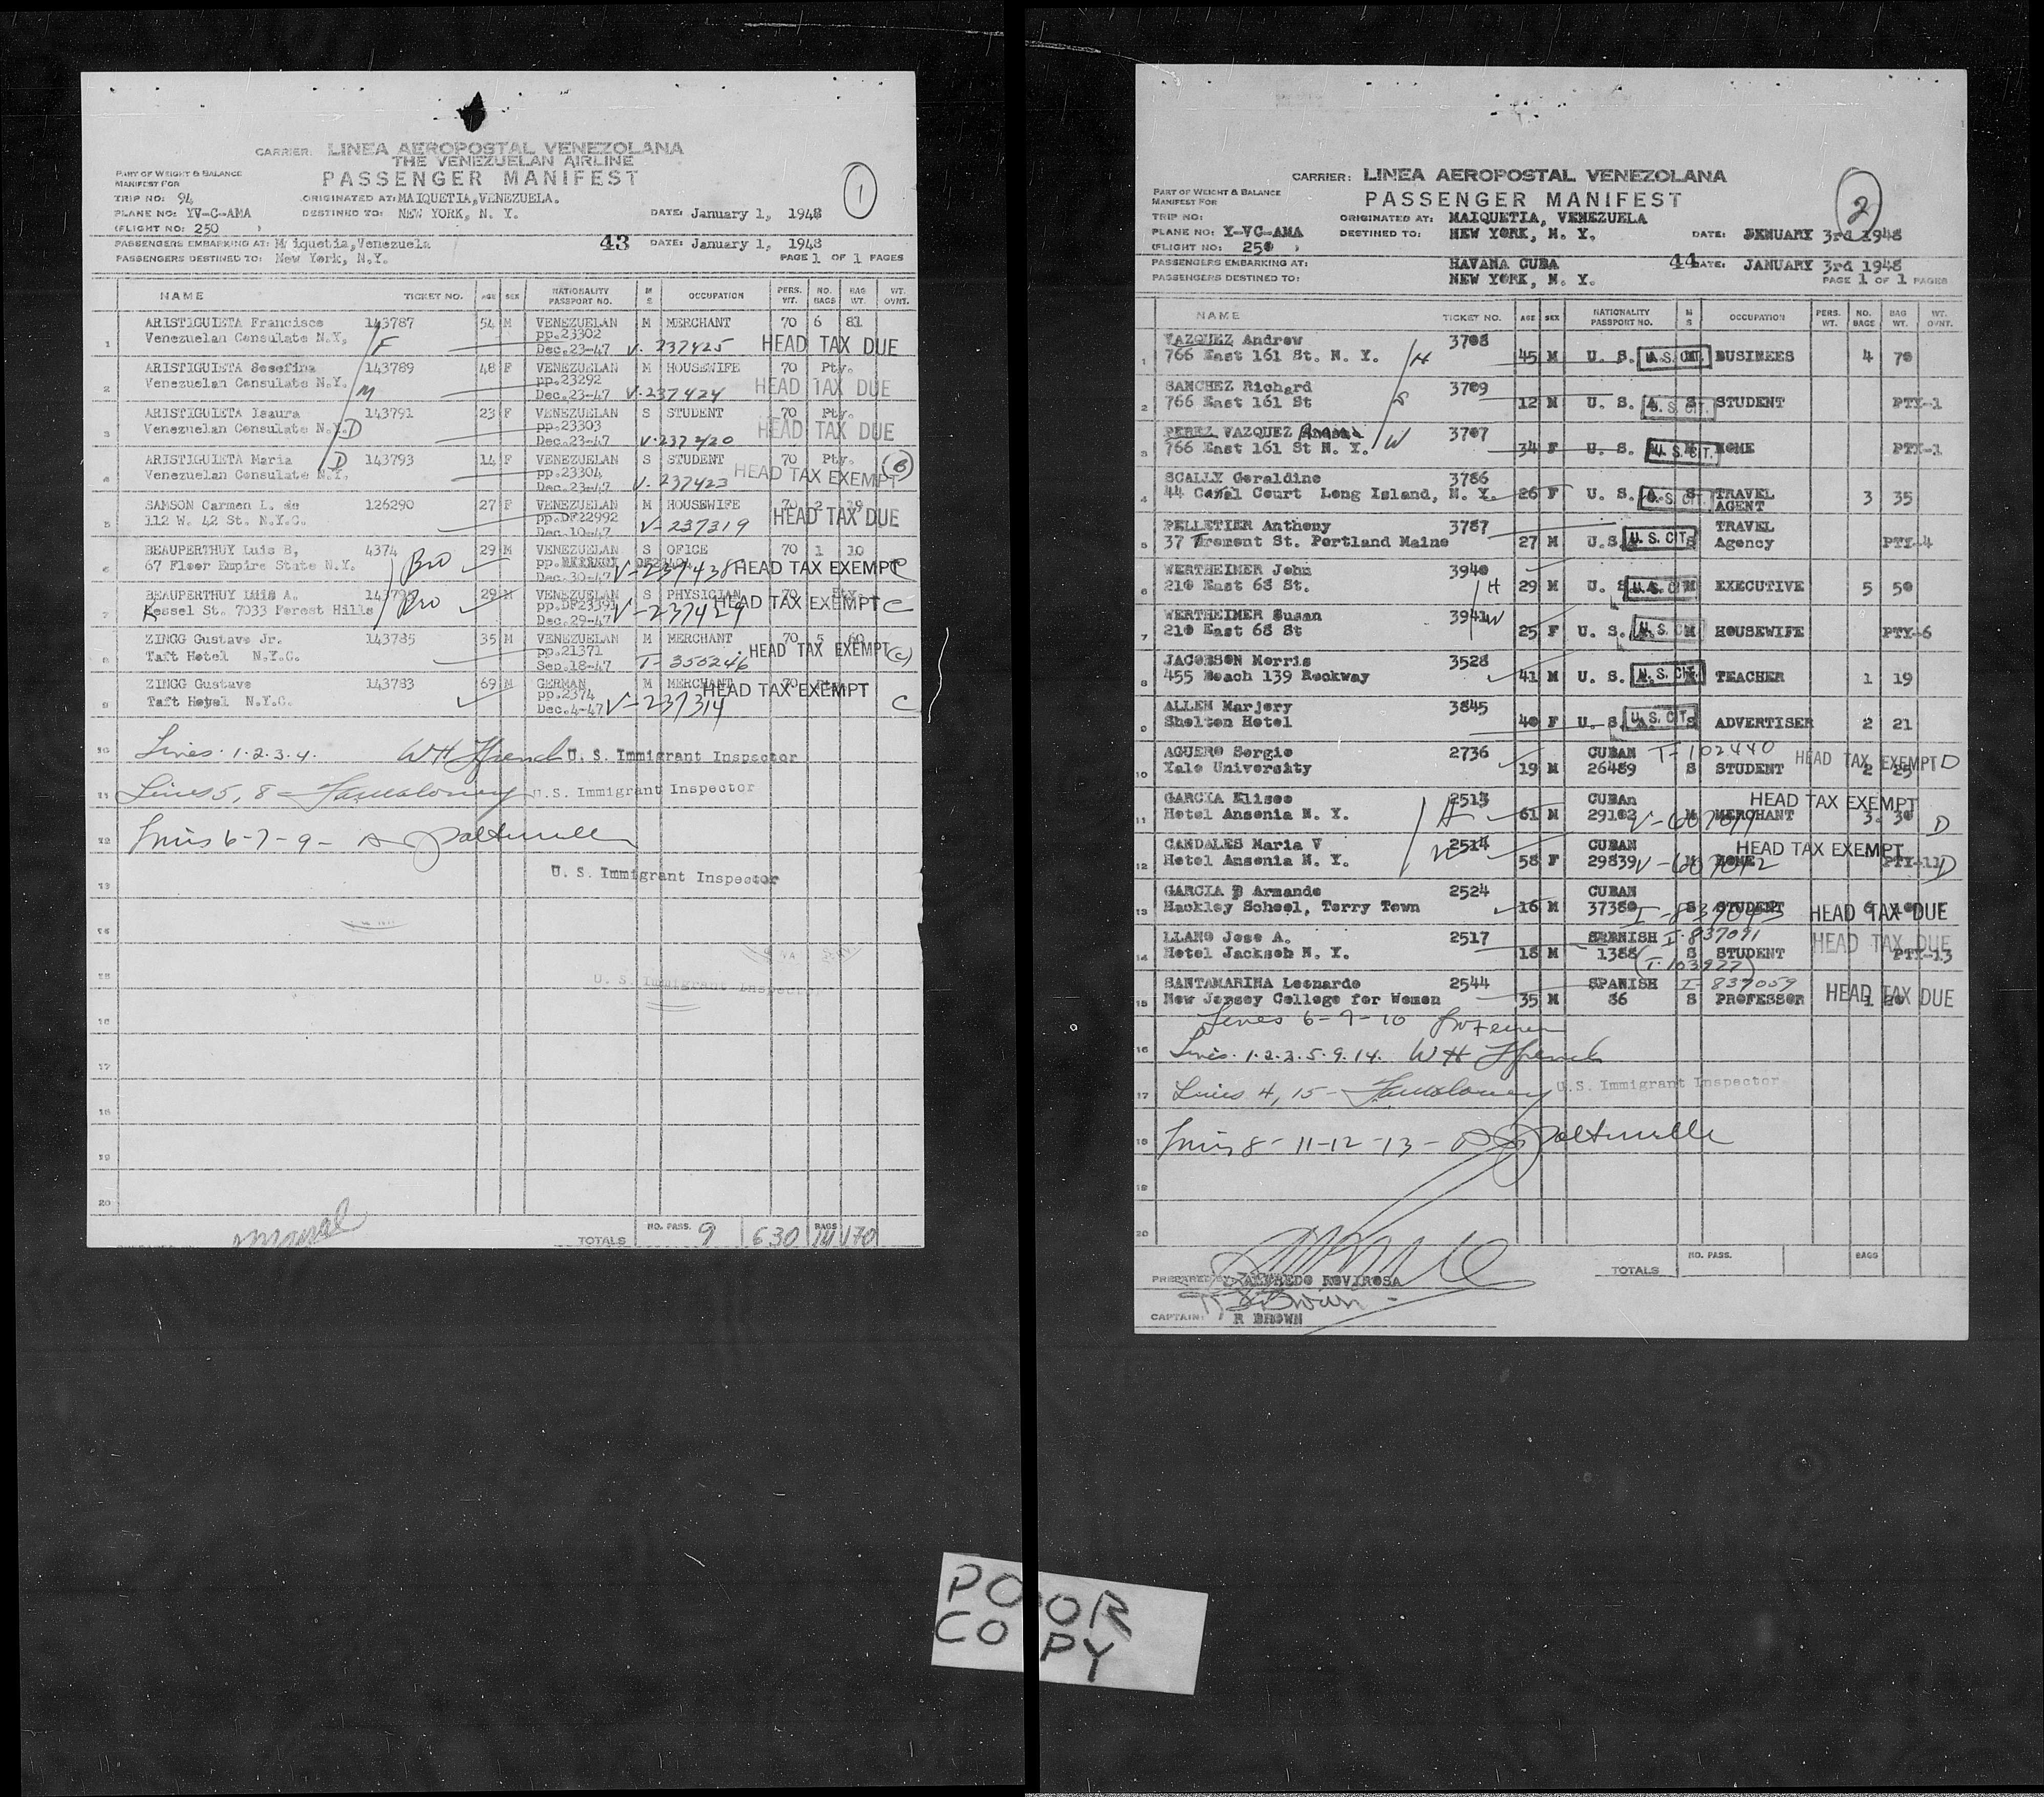 CARRIER: LINEA AEROPOSTAL VENEZOLANA
THE VENEZUELAN AIRLINE
PART OF WEIGHT & BALANCE
MANIFEST FOR
PASSENGER MANIFEST
1
TRIP NO: 94
ORIGINATED AT: MAIQUETIA, VENEZUELA.
PLANE NO: YV-C-AMA
DESTINED TO: NEW YORK, N. Y.
DATE: January 1, 1948
(FLIGHT NO: 250 )
PASSENGERS EMBARKING AT: Maiquetia, Venezuela
43
DATE: January 1, 1948
PASSENGERS DESTINED TO: New York, N.Y.
PAGE 1 OF 1 PAGES
NAME TICKET NO. AGE SEX NATIONALITY PASSPORT NO. M S OCCUPATION PERS. WT. NO. BAGS BAG WT. WT. OVNT.
ARISTIGUIETA Francisco 143787 54 M VENEZUELAN M MERCHANT 70 6 81
1 Venezuelan Consulate N.Y. F pp.23302
Dec.23-47 V-237425 HEAD TAX DUE
ARISTIGUIETA Josefina 143789 48 F VENEZUELAN M HOUSEWIFE 70 Pty.
2 Venezuelan Consulate N.Y. M pp.23292
Dec.23-47 V-237424 HEAD TAX DUE
ARISTIGUIETA Isaura 143791 23 F VENEZUELAN S STUDENT 70 Pty.
3 Venezuelan Consulate N.Y. D pp.23303
Dec.23-47 V-237420 HEAD TAX DUE
ARISTIGUIETA Maria D 143793 14 F VENEZUELAN S STUDENT 70 Pty.
4 Venezuelan Consulate N.Y. pp.23304
Dec.23-47 V-237423 HEAD TAX EXEMPT
SAMSON Carmen L. de 126290 27 F VENEZUELAN M HOUSEWIFE 70 2 19
5 112 W. 42 St. N.Y.C. pp.DF22992
Dec.10-47 V-237319 HEAD TAX DUE
BEAUPERTHUY Luis B, 4374 29 M VENEZUELAN S OFICE 70 1 10
6 67 Floor Empire State N.Y. Bro
Dec.30-47 V-237438 HEAD TAX EXEMPT C
BEAUPERTHUY Luis A. 29 M VENEZUELAN S PHYSICIAN 70
7 Kessel St. 7033 Forest Hills Bro pp.DF23391
Dec.29-47 V-237429 HEAD TAX EXEMPT C
ZINGG Gustavo Jr. 143785 35 M VENEZUELAN M MERCHANT 70 5 60
8 Taft Hotel N.Y.C. pp.21371
Sep.18-47 T-350246 HEAD TAX EXEMPT (C)
ZINGG Gustavo 143783 69 M GERMAN M MERCHANT 70
9 Taft Hotel N.Y.C. pp.2374
Dec.4-47 V-237314 HEAD TAX EXEMPT C
10 Lines 1.2.3.4. U. S. Immigrant Inspector
11 Lines 5, 8 - U.S. Immigrant Inspector
12 Lines 6-7-9-
U. S. Immigrant Inspector
13
14
15
U. S. Immigrant Inspector
16
17
18
19
20
TOTALS NO. PASS. 9 630 BAGS 14 170
CARRIER: LINEA AEROPOSTAL VENEZOLANA
PART OF WEIGHT & BALANCE
MANIFEST FOR
PASSENGER MANIFEST
2
TRIP NO:
ORIGINATED AT: MAIQUETIA, VENEZUELA
PLANE NO: Y-VC-AMA
DESTINED TO: NEW YORK, N. Y.
DATE: JENUARY 3rd 1948
(FLIGHT NO: 250 )
PASSENGERS EMBARKING AT: HAVANA CUBA
44
DATE: JANUARY 3rd 1948
PASSENGERS DESTINED TO: NEW YORK, N. Y.
PAGE 1 OF 1 PAGES
NAME TICKET NO. AGE SEX NATIONALITY PASSPORT NO. M S OCCUPATION PERS. WT. NO. BAGS BAG WT. WT. OVNT.
VAZQUEZ Andrew 3708
1 766 East 161 St. N. Y. H 45 M U. S. U.S. CIT. BUSINEES 4 70
SANCHEZ Richard 3709
2 766 East 161 St S 12 M U. S. U.S. CIT. STUDENT PTY-1
PEREZ VAZQUEZ 3707
3 766 East 161 St N. Y. W 34 F U. S. U.S. CIT. HOME PTY-1
SCALLY Geraldine 3786
4 44 Canal Court Long Island, N. Y. 26 F U. S. U.S. CIT. TRAVEL AGENT 3 35
PELLETIER Anthony 3787 TRAVEL
5 37 Tremont St. Portland Maine 27 M U.S. U.S. CIT. Agency PTY-4
WERTHEIMER John 3940
6 210 East 68 St. H 29 M U. S. U.S. CIT. EXECUTIVE 5 50
WERTHEIMER Susan 3941 W
7 210 East 68 St 25 F U. S. U.S. CIT. HOUSEWIFE PTY-6
JACOBSON Morris 3528
8 455 Beach 139 Rockway 41 M U. S. U.S. CIT. TEACHER 1 19
ALLEN Marjery 3845
9 Shelton Hotel 40 F U. S. U.S. CIT. ADVERTISER 2 21
AGUERO Sergio 2736 CUBAN T-102440 HEAD TAX EXEMPT D
10 Yale University 19 M 26489 S STUDENT 2 25
GARCIA Eliseo 2513 CUBAn HEAD TAX EXEMPT
11 Hotel Ansonia N. Y. H 61 M 29102 M MERCHANT 3 30 D
CANDALES Maria V 2514 CUBAN HEAD TAX EXEMPT
12 Hotel Ansonia N. Y. W 58 F 29839 M HOME PTY-11 D
GARCIA B Armando 2524 CUBAN
13 Hackley School, Terry Town 16 M 37380 S STUDENT HEAD TAX DUE
LLANO Jose A. 2517 SPANISH I-837091 HEAD TAX DUE
14 Hotel Jackson N. Y. 18 M 1388 S STUDENT PTY-13
(T-103927)
SANTAMARINA Leonardo 2544 SPANISH I-837059
15 New Jersey College for Women 35 M 36 S PROFESSOR 1 20 HEAD TAX DUE
Lines 6-7-10
16 Lines 1.2.3.5.9.14.
17 Lines 4, 15 - U.S. Immigrant Inspector
18 Lines 8-11-12-13-
19
20
TOTALS NO. PASS. BAGS
PREPARED BY: ALFREDO ROVIROSA
CAPTAIN: R BROWN
POOR
COPY